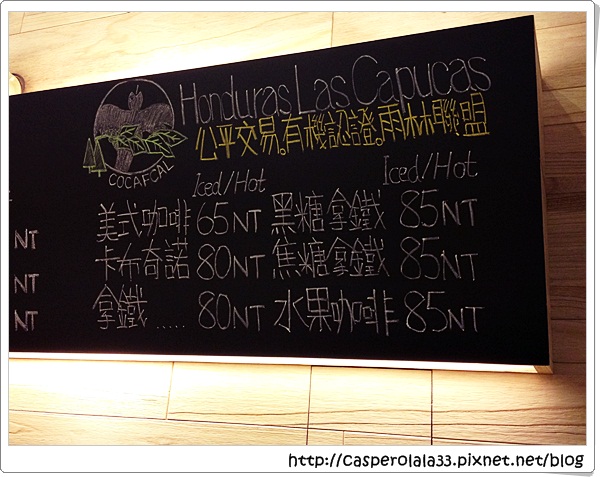 Honduras Las Capucas
公平交易。有機認證。雨林聯盟
COCAFCAL
Iced/Hot
Iced/Hot
美式咖啡 65NT 黑糖拿鐵 85NT
NT
卡布奇諾 80NT 焦糖拿鐵 85NT
NT
拿鐵..... 80NT 水果咖啡 85NT
NT
http://casperolala33.pixnet.net/blog